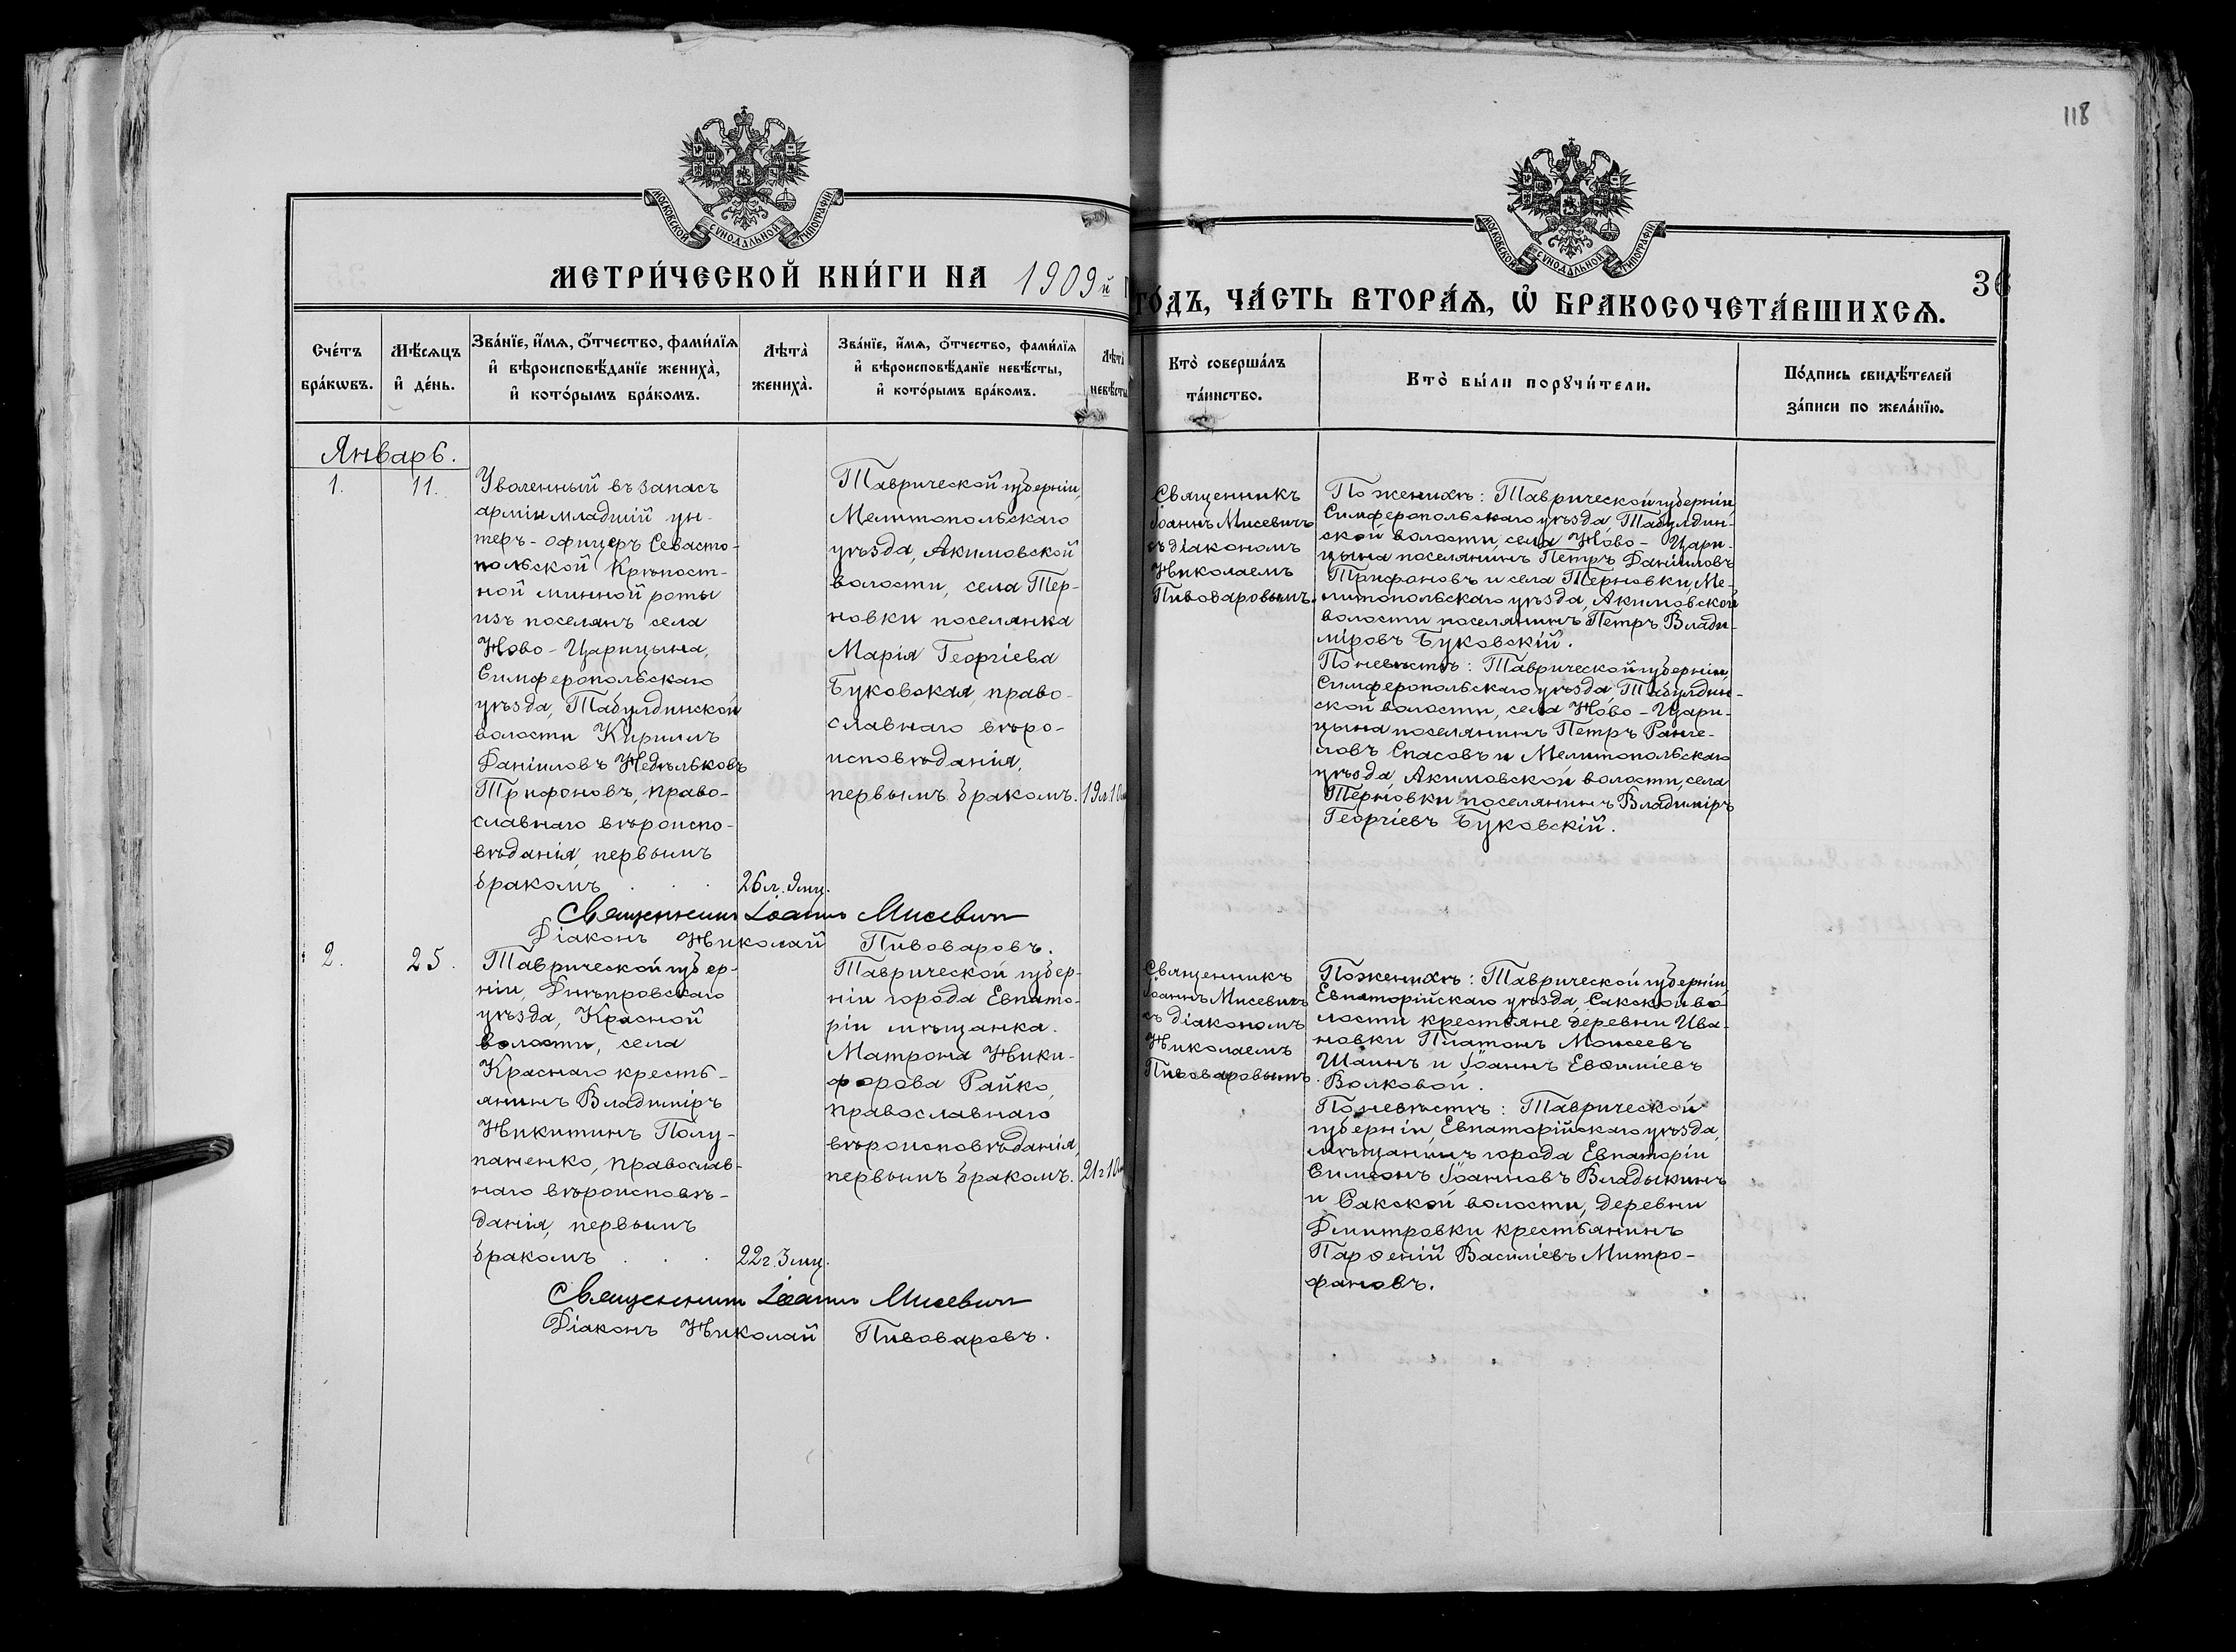 118
МОСКОВСКОЙ СѴНОДАЛЬНОЙ ТИПОГРАФІИ
МОСКОВСКОЙ СѴНОДАЛЬНОЙ ТИПОГРАФІИ
36
МЕТРИ́ЧЕСКОЙ КНИ́ГИ НА 1909й
ГО́ДЪ, ЧА́СТЬ ВТОРА́Ѧ, Ѡ҆ БРАКОСОЧЕТА́ВШИХСѦ.
Сче́тъ
бра́кѡвъ.
Мѣ́сѧцъ
и҆ де́нь.
Зва́нїе, и҆́мѧ, ѻ҆́тчество, фами́лїѧ
и҆ вѣроисповѣ́данїе жениха̀,
и҆ кото́рымъ бра́комъ.
Лѣта̀
жениха̀.
Зва́нїе, и҆́мѧ, ѻ҆́тчество, фами́лїѧ
и҆ вѣроисповѣ́данїе невѣ́сты,
и҆ кото́рымъ бра́комъ.
Лѣта̀
невѣ́сты
Кто̀ соверша́лъ
та́инство.
Кто̀ бы́ли порꙋчи́тели.
По́дпись свидѣ́телей
за́писи по жела́нїю.
Январь.
1.
11.
Уволенный въ запасъ
арміи младшій ун-
теръ-офицеръ Севасто-
польской Крѣпост-
ной минной роты
изъ поселянъ села
Ново-Царицына,
Симферопольскаго
уѣзда, Табулдинской
волости Кириллъ
Даніиловъ Недѣльковъ
Трифоновъ, право-
славнаго вѣроиспо-
вѣданія, первымъ
бракомъ . . .
26л. 9мц.
Таврической губерніи,
Мелитопольскаго
уѣзда, Акимовской
волости, села Тер-
новки поселянка
Марія Георгіева
Буковская, право-
славнаго вѣро-
исповѣданія,
первымъ бракомъ.
19л 10м
Священникъ
Іоаннъ Мисевичъ
съ діакономъ
Николаемъ
Пивоваровымъ.
По женихѣ: Таврической губерніи,
Симферопольскаго уѣзда, Табулдин-
ской волости, села Ново-Цари-
цына поселянинъ Петръ Даніиловъ
Трифоновъ и села Терновки, Ме-
литопольскаго уѣзда, Акимовской
волости поселянинъ Петръ Влади-
міровъ Буковскій.
По невѣстѣ: Таврической губерніи,
Симферопольскаго уѣзда, Табулдин-
ской волости, села Ново-Цари-
цына поселянинъ Петръ Ранге-
ловъ Спасовъ и Мелитопольскаго
уѣзда, Акимовской волости, села
Терновки поселянинъ Владиміръ
Георгіевъ Буковскій.
Священникъ Іоаннъ Мисевич
Діаконъ Николай Пивоваровъ.
2.
25.
Таврической губер-
ніи, Днѣпровскаго
уѣзда, Красной
волости, села
Краснаго кресть-
янинъ Владиміръ
Никитинъ Полу-
паненко, православ-
наго вѣроисповѣ-
данія, первымъ
бракомъ . . .
22г. 3мц.
Таврической губер-
ніи города Евпато-
ріи мѣщанка
Матрона Ники-
форова Райко,
православнаго
вѣроисповѣданія,
первымъ бракомъ.
21г 10м
Священникъ
Іоаннъ Мисевичъ
съ діакономъ
Николаемъ
Пивоваровымъ.
По женихѣ: Таврической губерніи,
Евпаторійскаго уѣзда, Сакской во-
лости крестьяне деревни Ива-
новки Платонъ Моисеевъ
Шаинъ и Іоаннъ Евѳиміевъ
Волковой.
По невѣстѣ: Таврической
губерніи, Евпаторійскаго уѣзда,
мѣщанинъ города Евпаторіи
Симеонъ Іоанновъ Владыкинъ
и Сакской волости, деревни
Дмитровки крестьянинъ
Парѳеній Василіевъ Митро-
фановъ.
Священникъ Іоаннъ Мисевич
Діаконъ Николай Пивоваровъ.